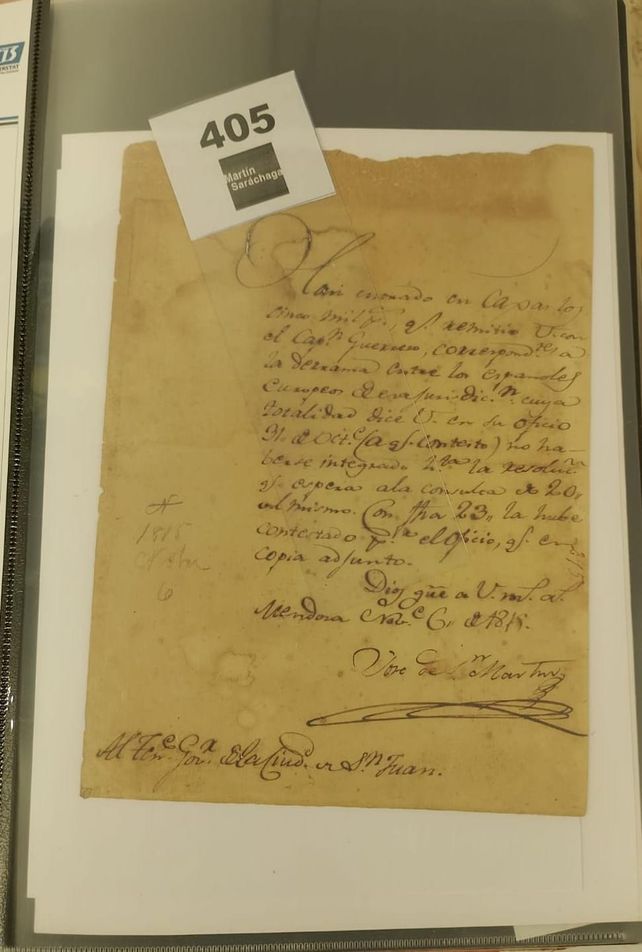 405
Martín
Saráchaga
Han entrado en Caxas los
cinco mil p.s, q.e remitio V. con
el Cap.n Guerrero, correspond.tes a
la derrama entre los españoles
Europeos de esa jurisdic.n cuya
totalidad dice V. en su oficio
31 de Oct.e (a q.e contesto) no ha-
berse integrado h.ta la resoluc.n
q.e espera a la consulta de 20,,
del mismo. Con fha 23,, la hube
contestado p.r el oficio, q.e en
copia adjunto.
Dios gũe a V. m.s a.s
Mendoza Nov.e 6,, de 1815.
Jose de S.n Martin
Al Ten.e Gov.r de la Ciud.d de S.n Juan.
1815
6